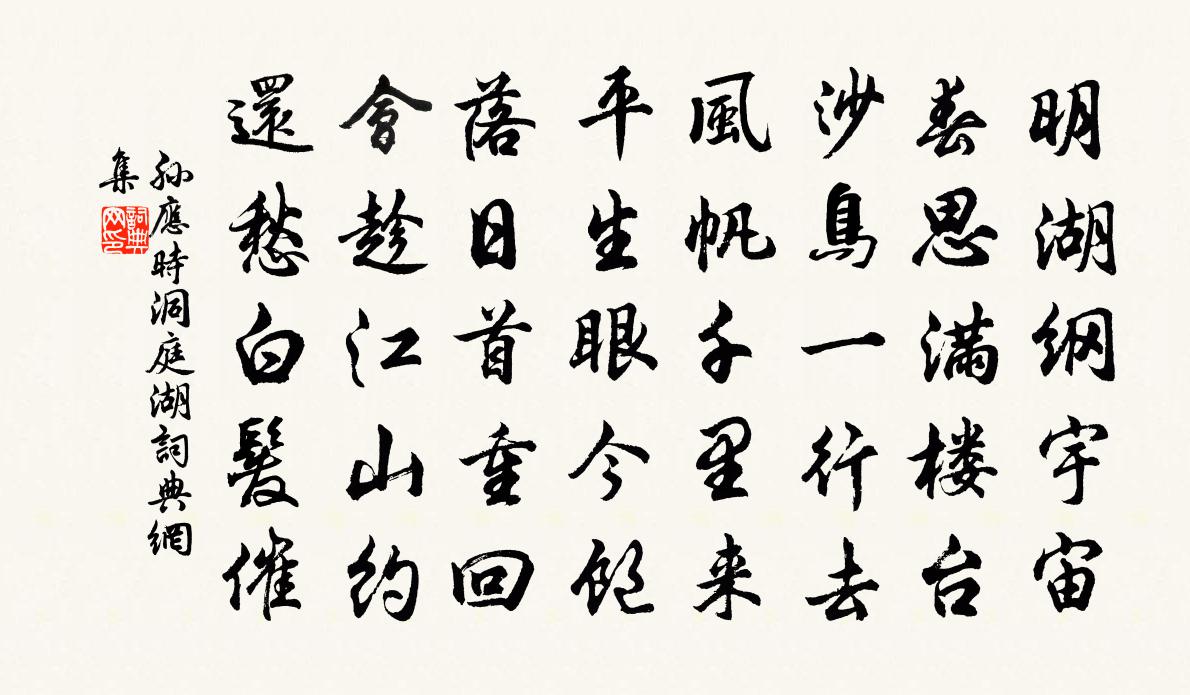 明湖纲宇宙
春思满楼台
沙鳥一行去
風帆千里来
平生眼今飽
落日首重回
會趁江山約
還愁白髮催
孫應時洞庭湖詞典網
集
詞典网印